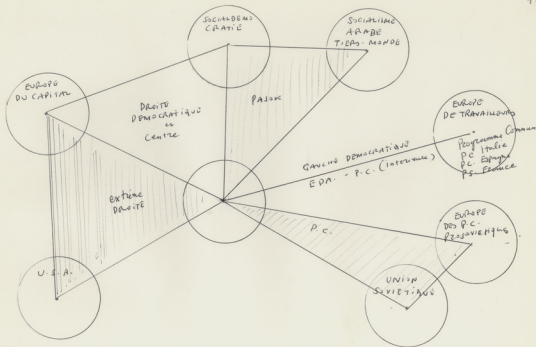 SOCIALDEMO
CRATIE
SOCIALISME
ARABE
TIERS-MONDE
EUROPE
DU CAPITAL
DROITE
DEMOCRATIQUE
Centre
PASOK
EUROPE
DE TRAVAILLEURS
Programme Commun
PC Italie
PC. Espagne
PS. France
GAUCHE DEMOCRATIQUE
EDA. - P.C. (Interieur)
extrême
DROITE
P.C.
EUROPE
DES P.C.
PROSOVIETIQUES
U.S.A.
UNION
SOVIETIQUE